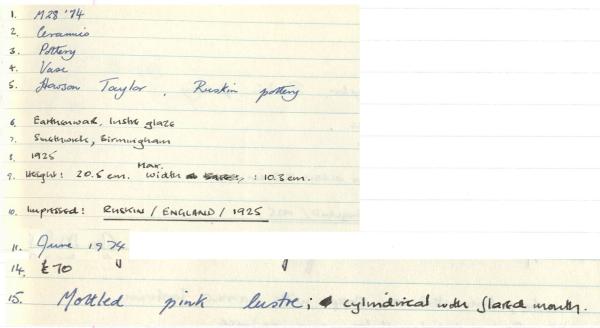 1. M28 '74
2. Ceramic
3. Pottery
4. Vase
5. Howson Taylor, Ruskin pottery
6. Earthenware, lustre glaze
7. Smethwick, Birmingham
8. 1925
9. Height: 20.5 cm. Max. width : 10.3 cm.
10. Impressed: RUSKIN / ENGLAND / 1925
11. June 1974
14. £70
15. Mottled pink lustre; cylindrical with flared mouth.